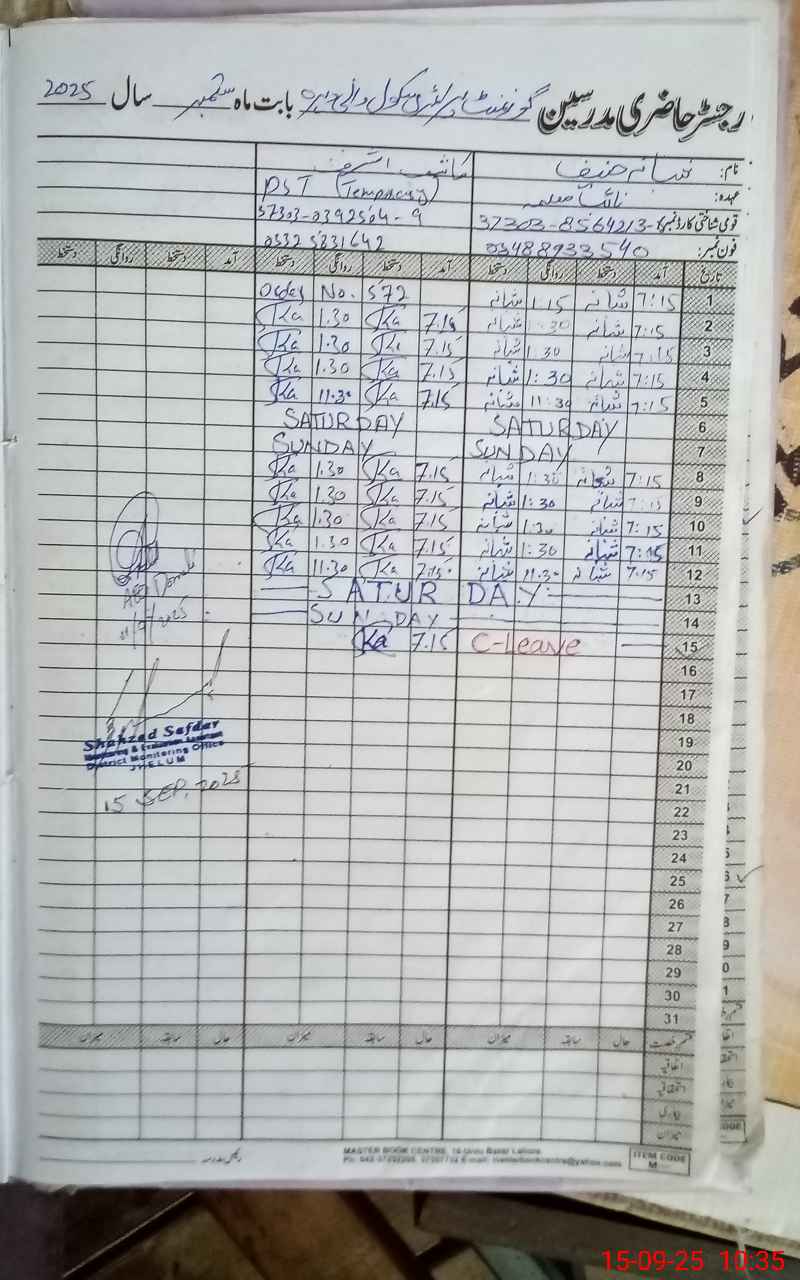 رجسٹر حاضری مدرسین گورنمنٹ پرائمری سکول بابت ماہ ستمبر سال 2025
نام: شبانہ حنیف کاشف اشرف
عہدہ: نائب معلمہ PST (Temporary)
قومی شناختی کارڈ نمبر: 37303-8564213- 37303-0392504-9
فون نمبر: 03488933540 0332 5331642
تاریخ آمد دستخط روانگی دستخط آمد دستخط روانگی دستخط آمد دستخط روانگی دستخط
1 7:15 شبانہ 1:15 شبانہ Order No. 572
2 7:15 شبانہ 1:30 شبانہ 7.15 Ka 1.30 Ka
3 7:15 شبانہ 1:30 شبانہ 7.15 Ka 1.30 Ka
4 7:15 شبانہ 1:30 شبانہ 7.15 Ka 1.30 Ka
5 7:15 شبانہ 11:30 شبانہ 7.15 Ka 11.30 Ka
6 SATURDAY SATURDAY
7 SUNDAY SUNDAY
8 7:15 شبانہ 1:30 شبانہ 7.15 Ka 1.30 Ka
9 7:15 شبانہ 1:30 شبانہ 7.15 Ka 1.30 Ka
10 7:15 شبانہ 1:30 شبانہ 7.15 Ka 1.30 Ka
11 7:15 شبانہ 1:30 شبانہ 7.15 Ka 1.30 Ka
12 7:15 شبانہ 11:30 شبانہ 7.15 Ka 11.30 Ka
13 SATURDAY
14 SUNDAY
15 C-Leave 7.15 Ka
16
17
18
19
20
21
22
23
24
25
26
27
28
29
30
31
11/9/2025
Shahzad Safdar
Monitoring & Evaluation Assistant
District Monitoring Office
JHELUM
15 SEP, 2025
قسم رخصت حال سابقہ میزان حال سابقہ میزان حال سابقہ میزان
اتفاقیہ
استحقاقیہ
بیماری
میزان
رئیس مدرسہ
MASTER BOOK CENTRE, 10-Urdu Bazar Lahore.
ITEM CODE
M
15-09-25 10:35